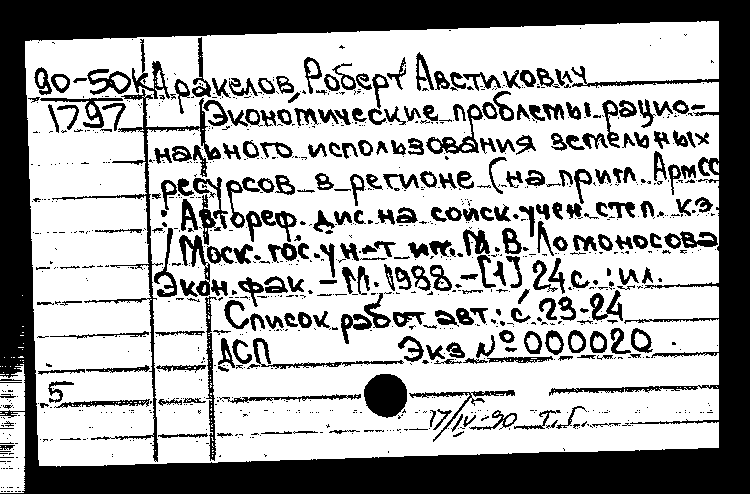 90-50К Аракелов, Роберт Австикович
1797 Экономические проблемы рацио-
нального использования земельных
ресурсов в регионе (на прим. АрмСС
: Автореф. дис. на соиск. учен. степ. к.э.
/ Моск. гос. ун-т им. М.В. Ломоносова
Экон. фак. - М. 1988. - [1], 24 с. : ил.
Список работ авт.: с. 23-24
ДСП Экз №000020.
5
17/IV-90 Т.Г.